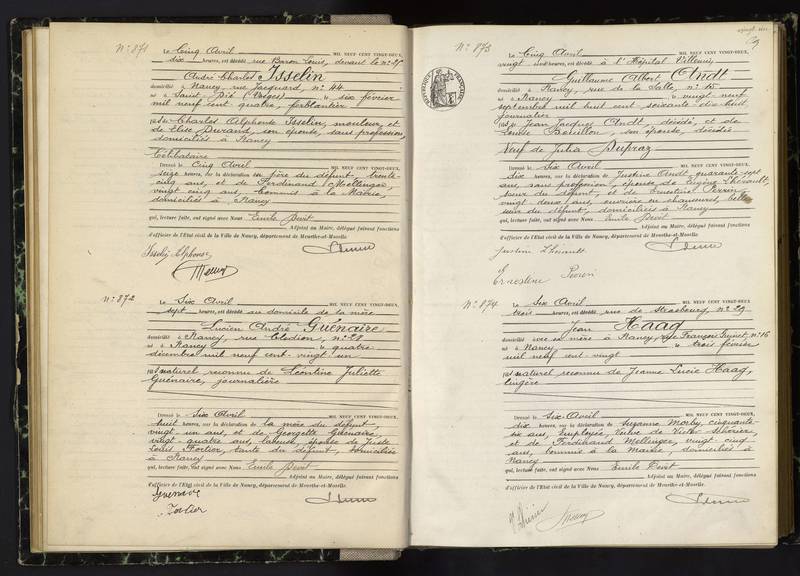 N° 871
Le Cinq Avril MIL NEUF CENT VINGT-DEUX,
dix heures, est décédé rue Baron Louis, devant le n° 25
André Charles Isselin
domicilié à Nancy, rue Jacquard, n° 44
né à Saint Dié (Vosges) le six février
mil neuf cent quatre, ferblantier
fils de Charles Alphonse Isselin, mouleur, et
de Elise Durand, son épouse, sans profession,
domiciliés à Nancy
Célibataire
Dressé le Cinq Avril MIL NEUF CENT VINGT-DEUX,
seize heures, sur la déclaration de père du défunt, trente
cinq ans, et de Ferdinand Mellinger,
vingt cinq ans, commis à la Mairie,
domiciliés à Nancy
qui, lecture faite, ont signé avec Nous Emile Devit
Adjoint au Maire, délégué faisant fonctions
d'officier de l'Etat civil de la Ville de Nancy, département de Meurthe-et-Moselle.
Isselin Alphonse
N° 872
Le Six Avril MIL NEUF CENT VINGT-DEUX,
sept heures, est décédé au domicile de sa mère
Lucien André Guénaire
domicilié à Nancy, rue Clodion, n° 28
né à Nancy le quatre
décembre mil neuf cent vingt un
fils naturel reconnu de Léontine Juliette
Guénaire, journalière
Dressé le Six Avril MIL NEUF CENT VINGT-DEUX,
huit heures, sur la déclaration de la mère du défunt,
vingt un ans, et de Georgette Guénaire,
vingt quatre ans, laveuse, épouse de Juste
Louis Fortier, tante du défunt, domiciliées
à Nancy
qui, lecture faite, ont signé avec Nous Emile Devit
Adjoint au Maire, délégué faisant fonctions
d'officier de l'Etat civil de la Ville de Nancy, département de Meurthe-et-Moselle.
Guenaire
Fortier
N° 873
Le Cinq Avril MIL NEUF CENT VINGT-DEUX,
vingt heures, est décédé à l'Hôpital Villemin,
Guillaume Albert Arndt
domicilié à Nancy, rue de la Salle, n° 15
né à Nancy le vingt neuf
septembre mil huit cent soixante dix huit,
journalier
fils de Jean Jacques Arndt, décédé, et de
Louise Bouillon, son épouse, décédée
Veuf de Julia Dupraz
Dressé le Six Avril MIL NEUF CENT VINGT-DEUX,
dix heures, sur la déclaration de Justine Arndt, quarante sept
ans, sans profession, épouse de Eugène Lhérault,
sœur du défunt, et de Ernestine Perrin,
vingt deux ans, ouvrière en chaussures, belle
sœur du défunt, domiciliées à Nancy
qui, lecture faite, ont signé avec Nous Emile Devit
Adjoint au Maire, délégué faisant fonctions
d'officier de l'Etat civil de la Ville de Nancy, département de Meurthe-et-Moselle.
Justine Lhérault
Ernestine Perrin
N° 874
Le Six Avril MIL NEUF CENT VINGT-DEUX,
trois heures, est décédé rue de Strasbourg, n° 29
Jean Haag
domicilié avec sa mère à Nancy, rue François Guinet, n° 16
né à Nancy le trois février
mil neuf cent vingt
fils naturel reconnu de Jeanne Lucie Haag,
lingère
Dressé le Six Avril MIL NEUF CENT VINGT-DEUX,
dix heures, sur la déclaration de Suzanne Morby, cinquante-
six ans, employée, veuve de Victor
et de Ferdinand Mellinger, vingt cinq
ans, commis à la Mairie, domiciliés à
Nancy
qui, lecture faite, ont signé avec Nous Emile Devit
Adjoint au Maire, délégué faisant fonctions
d'officier de l'Etat civil de la Ville de Nancy, département de Meurthe-et-Moselle.